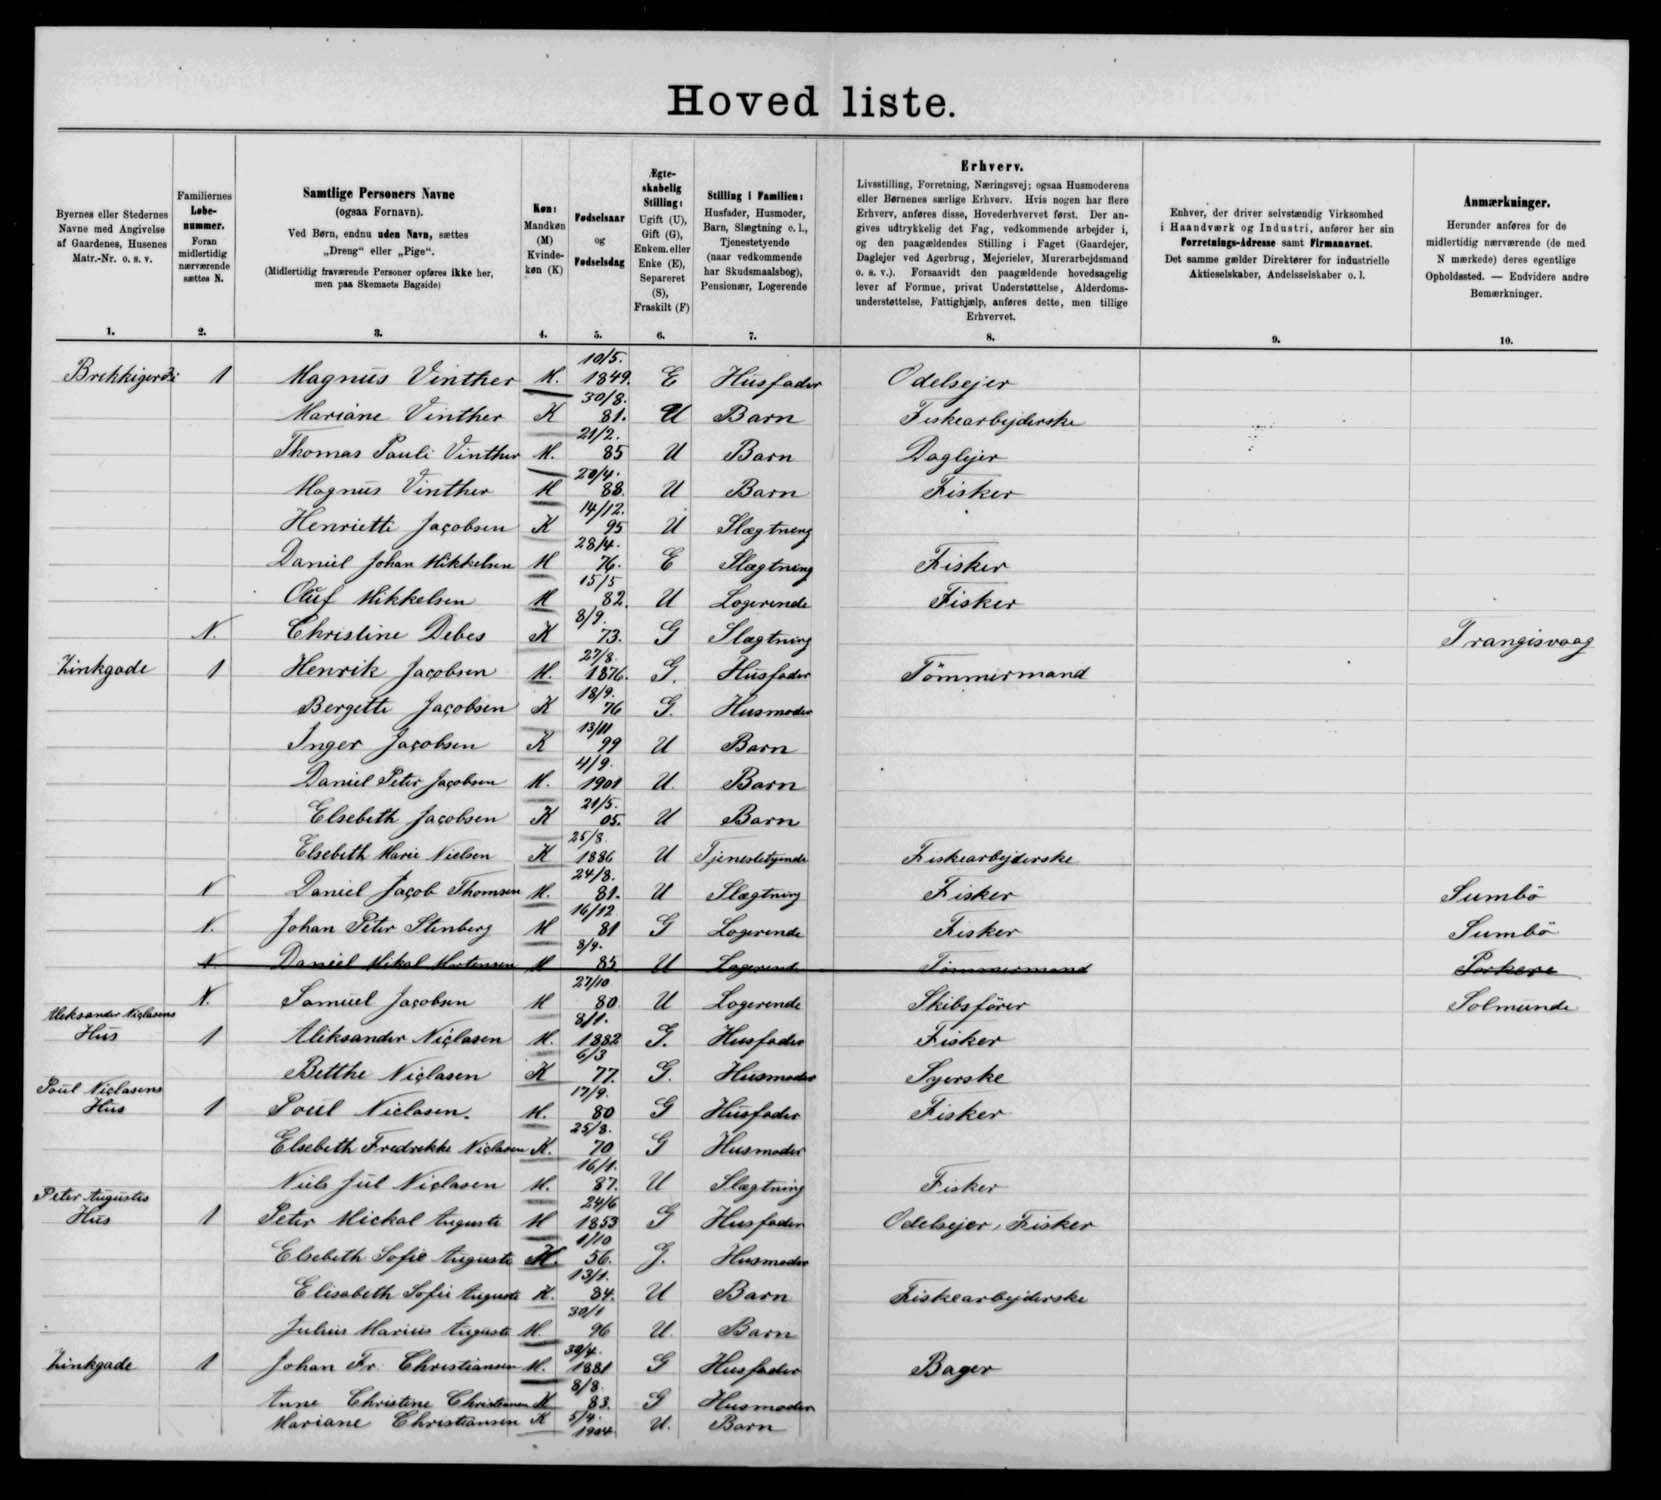 Hovedliste.
Byernes eller Stedernes Navne med Angivelse af Gaardenes, Husenes Matr.-Nr. o. s. v.
Familiernes Løbenummer. Foran midlertidig nærværende sættes N.
Samtlige Personers Navne
(ogsaa Fornavn).
Ved Børn, endnu uden Navn, sættes „Dreng“ eller „Pige“.
(Midlertidig fraværende Personer opføres ikke her, men paa Skemaets Bagside)
Køn:
Mandkøn (M) Kvindekøn (K)
Fødselsaar og Fødselsdag
Ægteskabelig Stilling:
Ugift (U), Gift (G), Enkem. eller Enke (E), Separeret (S), Fraskilt (F)
Stilling i Familien:
Husfader, Husmoder, Barn, Slægtning o. l., Tjenestetyende (naar vedkommende har Skudsmaalsbog), Pensionær, Logerende
Erhverv.
Livsstilling, Forretning, Næringsvej; ogsaa Husmoderens
eller Børnenes særlige Erhverv. Hvis nogen har flere
Erhverv, anføres disse, Hovederhvervet først. Der an-
gives udtrykkelig det Fag, vedkommende arbejder i,
og den paagældendes Stilling i Faget (Gaardejer,
Daglejer ved Agerbrug, Mejerielev, Murerarbejdsmand
o. s. v.). Forsaavidt den paagældende hovedsagelig
lever af Formue, privat Understøttelse, Alderdoms-
understøttelse, Fattighjælp, anføres dette, men tillige
Erhvervet.
Enhver, der driver selvstændig Virksomhed
i Haandværk og Industri, anfører her sin
Forretnings-Adresse samt Firmanavnet.
Det samme gælder Direktører for industrielle
Aktieselskaber, Andelsselskaber o. l.
Anmærkninger.
Herunder anføres for de
midlertidig nærværende (de med
N mærkede) deres egentlige
Opholdssted. — Endvidere andre
Bemærkninger.
1. 2. 3. 4. 5. 6. 7. 8. 9. 10.
1 Magnus Vinther M. 10/5. 1849. E Husfader Odelsejer
Mariane Vinther K 30/8. 81. U Barn Fiskearbejderske
Thomas Pauli Vinther M. 21/2. 85 U Barn Daglejer
Magnus Vinther M 20/4. 88. U Barn Fisker
Henriette Jacobsen K 14/12. 95 U Slægtning
Daniel Johan Mikkelsen M 28/4. 76. E Slægtning Fisker
Oluf Mikkelsen M 15/5 82. U Logerende Fisker
N. Christine Debes K 8/9. 73. G Slægtning Trangisvaag
Zinkgade 1 Henrik Jacobsen M. 27/8. 1876. G. Husfader Tömmermand
Bergette Jacobsen K 18/9. 76 G. Husmoder
Inger Jacobsen K 13/11 99 U Barn
Daniel Peter Jacobsen M. 4/9. 1901 U. Barn
Elsebeth Jacobsen K 21/5. 05. U Barn
Elsebeth Marie Nielsen K 25/8. 1886 U Tjenestetyende Fiskearbejderske
N Daniel Jacob Thomsen M. 24/8. 81. U Slægtning Fisker Sumbö
N. Johan Peter Stenberg M 16/12 81 G Logerende Fisker Sumbö
N. Daniel Mikal Mortensen M 8/9. 85 U Logerende Tømmermand Porkere
N. Samuel Jacobsen M 27/10 80 U Logerende Skibsfører Solmunde
Aleksander Niclasens
Hus 1 Aleksander Niclasen M. 8/1. 1882 G. Husfader Fisker
Betthe Niclasen K 6/3 77. G. Husmoder Syerske
Poul Niclasens
Hus 1 Poul Niclasen. M. 17/9. 80 G Husfader Fisker
Elsebeth Fredrekke Niclasen K. 25/8. 70 G Husmoder
Niels Jul Niclasen M. 16/1. 87. U Slægtning Fisker
Peter Augustes
Hus 1 Peter Mickal Auguste M 24/6 1853 G Husfader Odelsejer, Fisker
Elsebeth Sofie Auguste K. 1/10 56. G. Husmoder
Elisabeth Sofie Auguste K. 13/1. 84. U Barn Fiskearbejderske
Julius Marius Auguste M. 30/1 96 U. Barn
Zinkgade 1 Johan Fr. Christiansen M. 30/4. 1881 G Husfader Bager
Anne Christine Christiansen K 8/8. 83. G Husmoder
Mariane Christiansen K 5/4. 1904 U. Barn